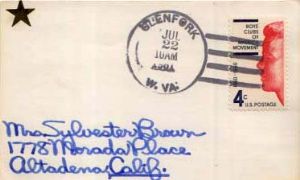 GLENFORK
JUL
22
10AM
W. VA.
BOYS'
CLUBS OF
MOVEMENT
4c
U.S. POSTAGE
Mrs. Sylvester Brown
1778 Morada Place
Altadena, Calif.